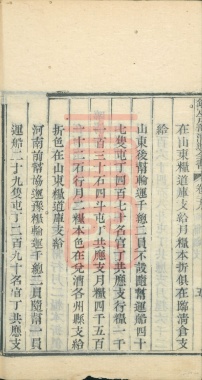 在山東糧道庫支給月糧本折俱在臨清倉支
給
山東後幫輪運千總二員不設隨幫運船四十
七隻屯丁四百七十名官丁共應支行糧一千
一百三十石四斗屯丁共應支月糧四千五百
六十二石行月二糧本色在兌漕各州縣支給
折色在山東糧道庫支給
河南前幫協運豫糧輪運千總二員隨幫一員
運船二十九隻屯丁二百九十名官丁共應支